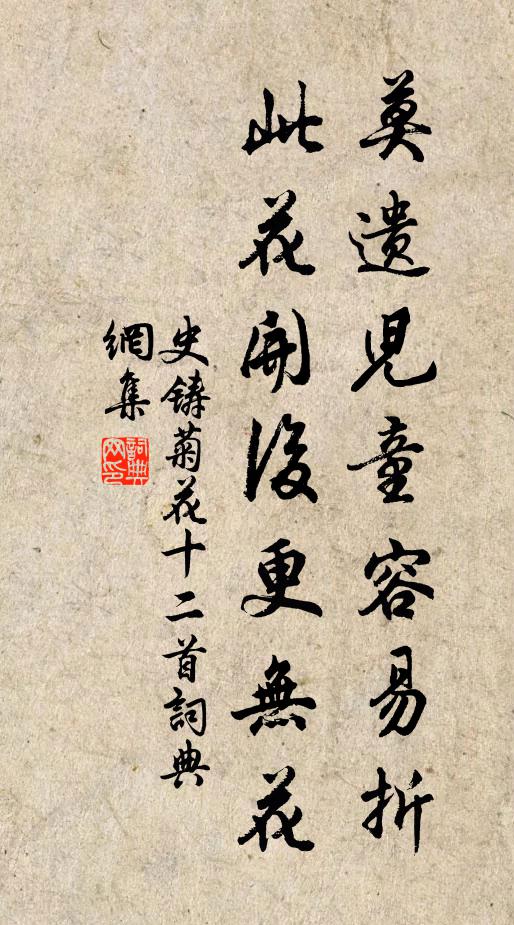 莫遣兒童容易折
此花開後更無花
史鑄菊花十二首詞典
網集
詞典
网印